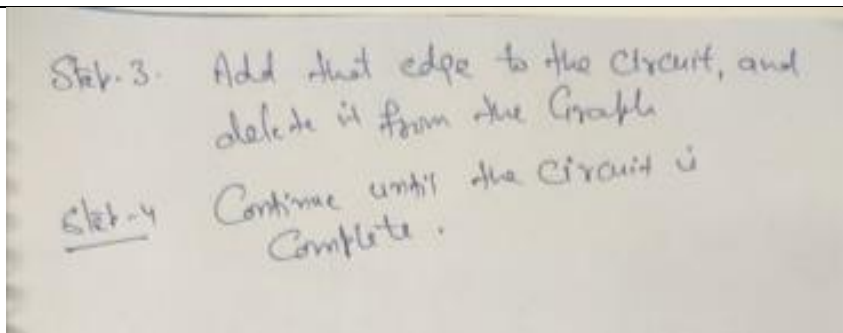 Step-3. Add that edge to the circuit, and
delete it from the Graph
Step-4 Continue until the circuit is
Complete.